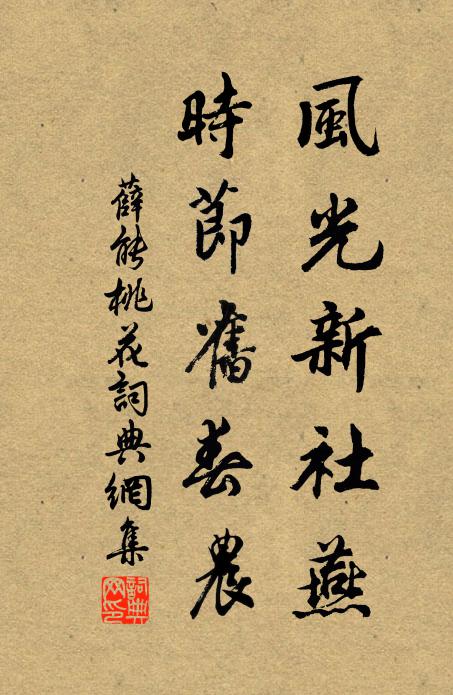 風光新社燕
時節舊春農
薛能桃花詞典網集
詞典網印